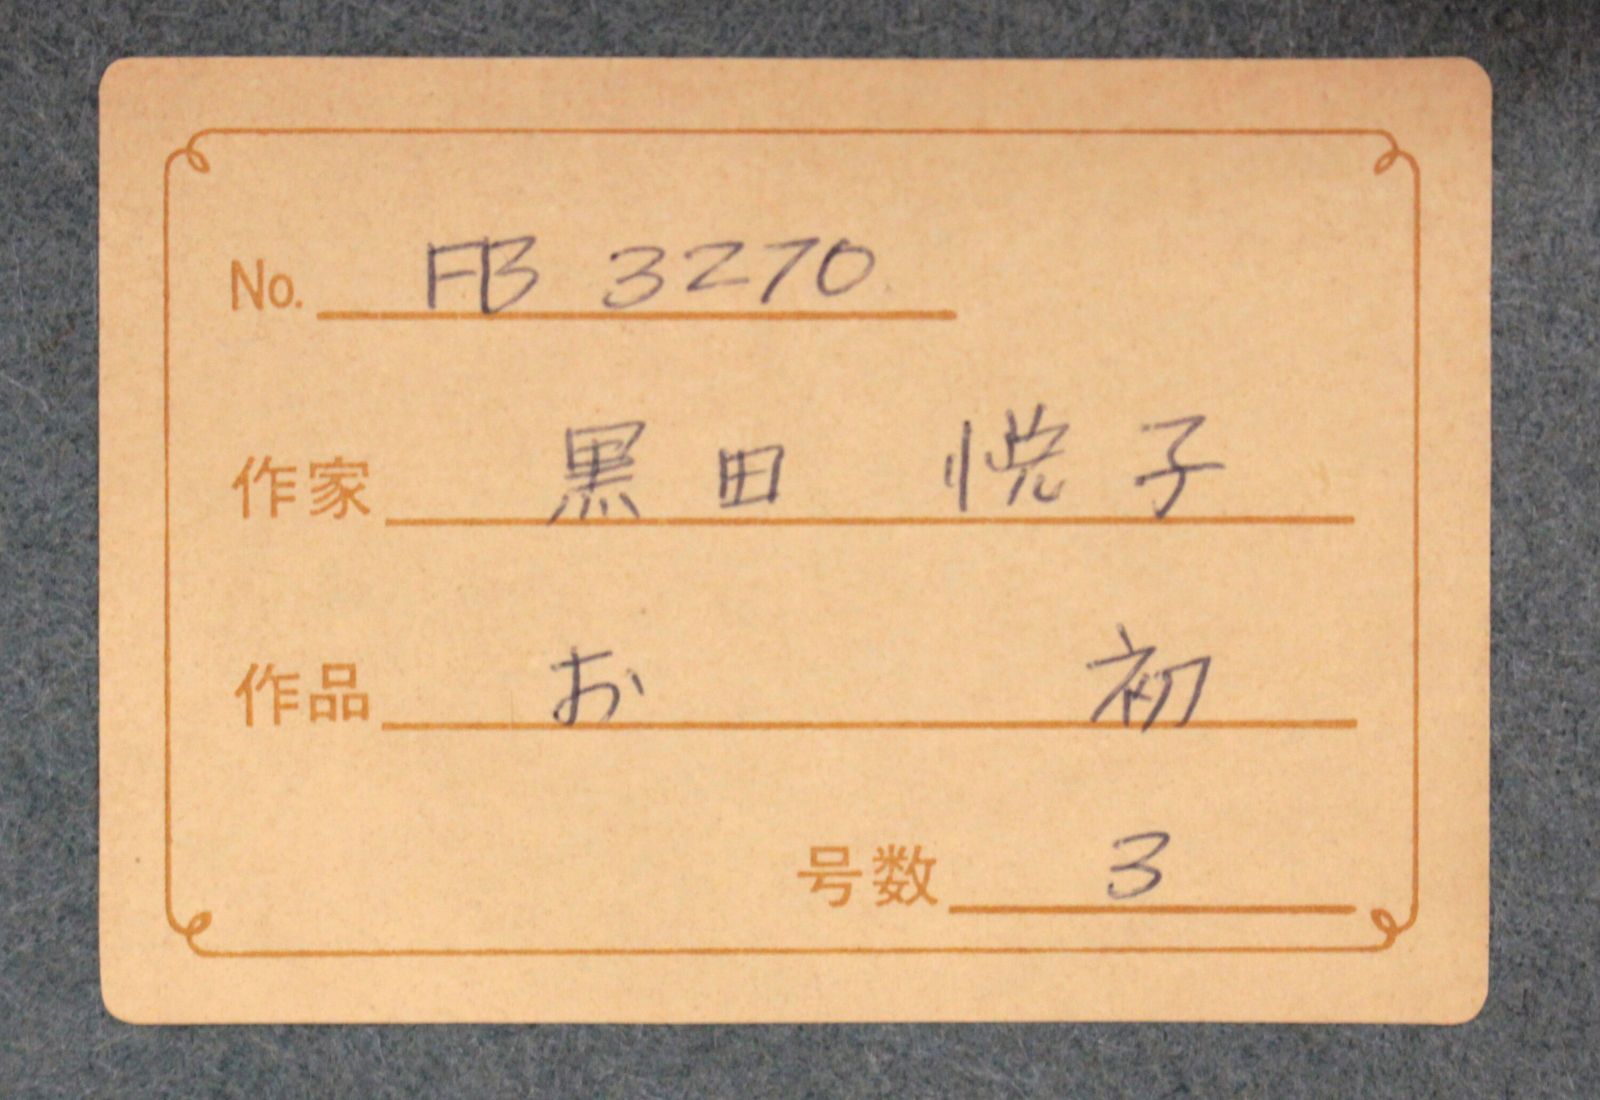 No. FB 3270
作家 黒田 悦子
作品 お 初
号数 3